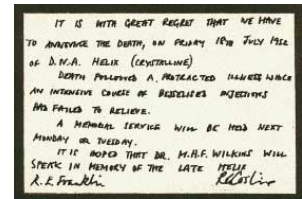 IT IS WITH GREAT REGRET THAT WE HAVE
TO ANNOUNCE THE DEATH, ON FRIDAY 18TH JULY 1952
OF D.N.A. HELIX (CRYSTALLINE)
DEATH FOLLOWED A PROTRACTED ILLNESS WHICH
AN INTENSIVE COURSE OF BESSELISED INJECTIONS
HAD FAILED TO RELIEVE.
A MEMORIAL SERVICE WILL BE HELD NEXT
MONDAY OR TUESDAY.
IT IS HOPED THAT DR. M.H.F. WILKINS WILL
SPEAK IN MEMORY OF THE LATE HELIX
R. E. Franklin R Gosling